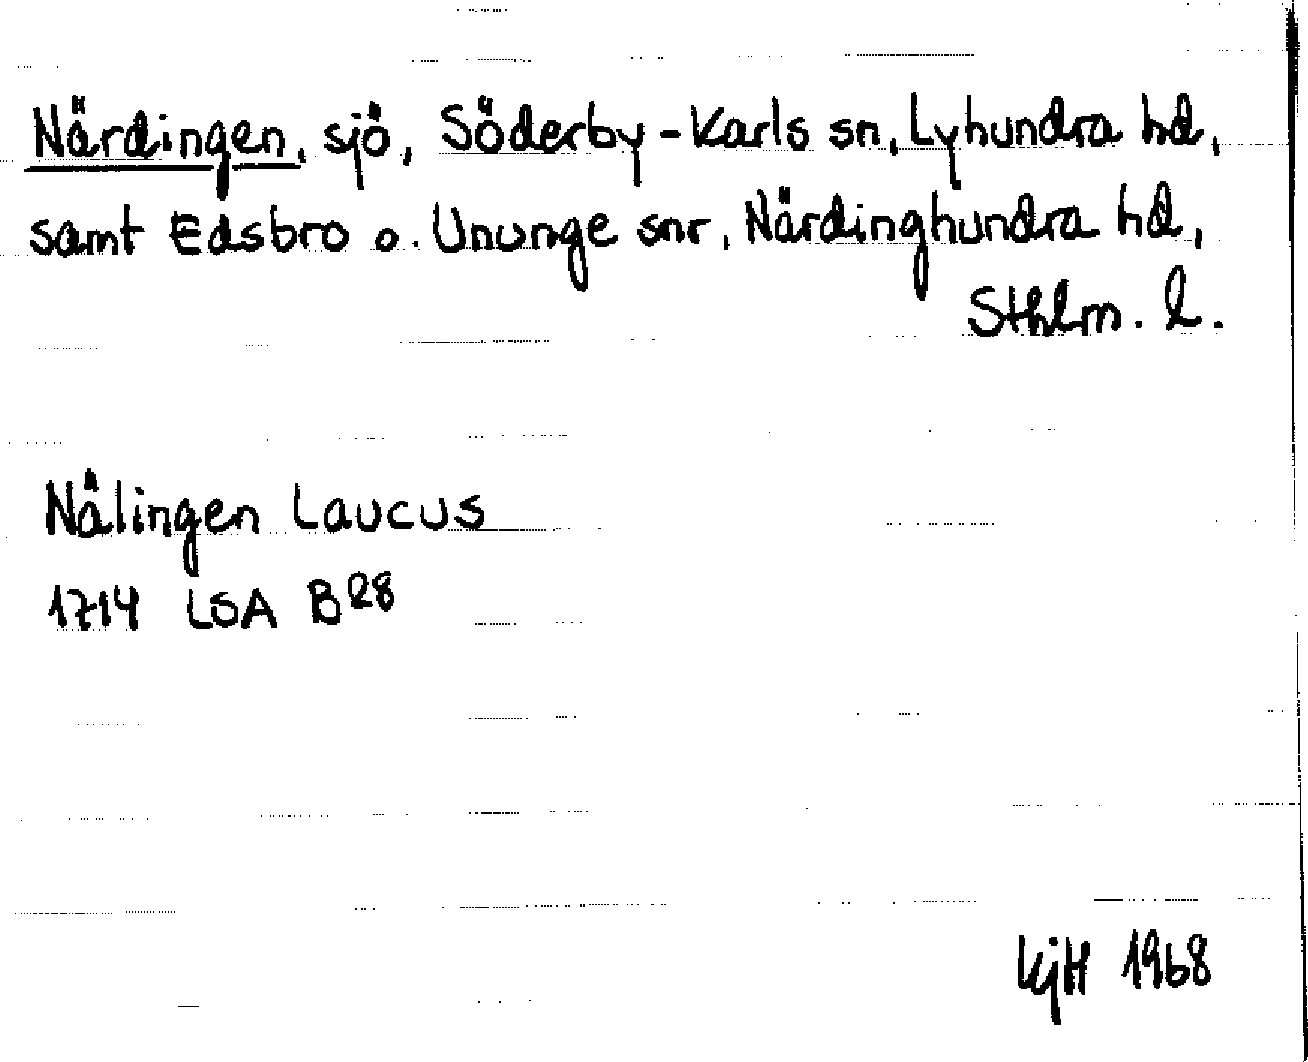 Närdingen, sjö, Söderby-Karls sn, Lyhundra hd,
samt Edsbro o. Ununge snr, Närdinghundra hd,
Sthlm. l.
Nålingen Laucus
1714 LSA B28
KjH 1968